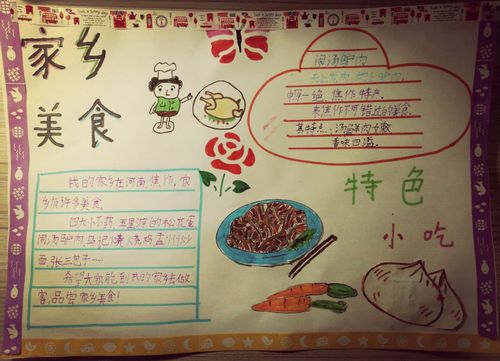 家乡
美食
闹汤驴肉
天上龙肉,地上驴肉,
中原一绝,焦作特产。
来焦作不可错过的美食.
其特点:汤鲜肉嫩
香味四溢.
我的家乡在河南,焦作,家
乡有许多美食,
四大怀药,五里源的松花蛋
闹汤驴肉,马记烧鸡,孟州炒
面,张三包子……
希望大家能到我的家乡去做
客,品尝家乡美食!
特色
小吃